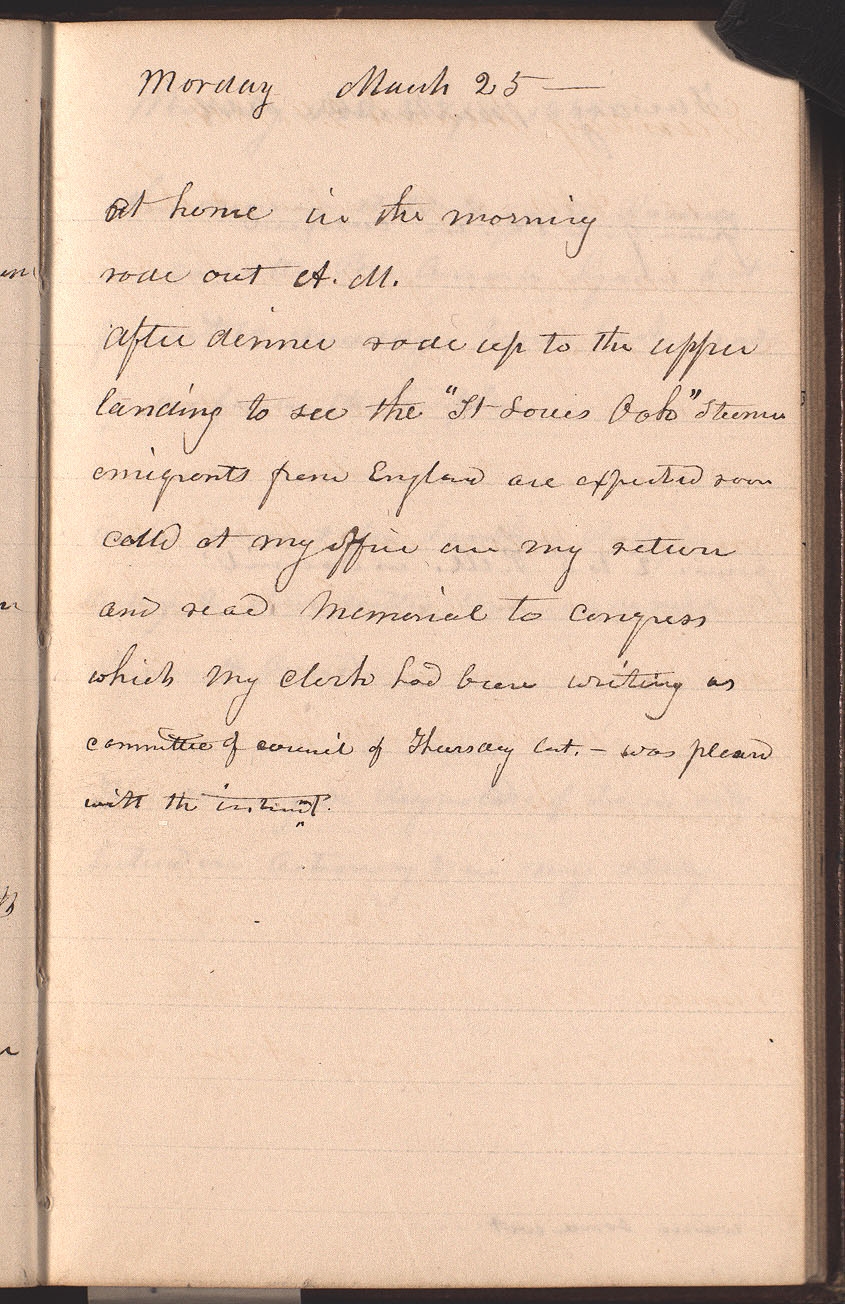 Monday March 25 —
at home in the morning
rode out A. M.
after dinner rode up to the upper
landing to see the "St Louis Oak" Steemer
emigrants from England are expected soon
calld at my office on my return
and read Memorial to Congress
which my clerk had been writing as
committee of council of Thursday last. – was pleasd
with the